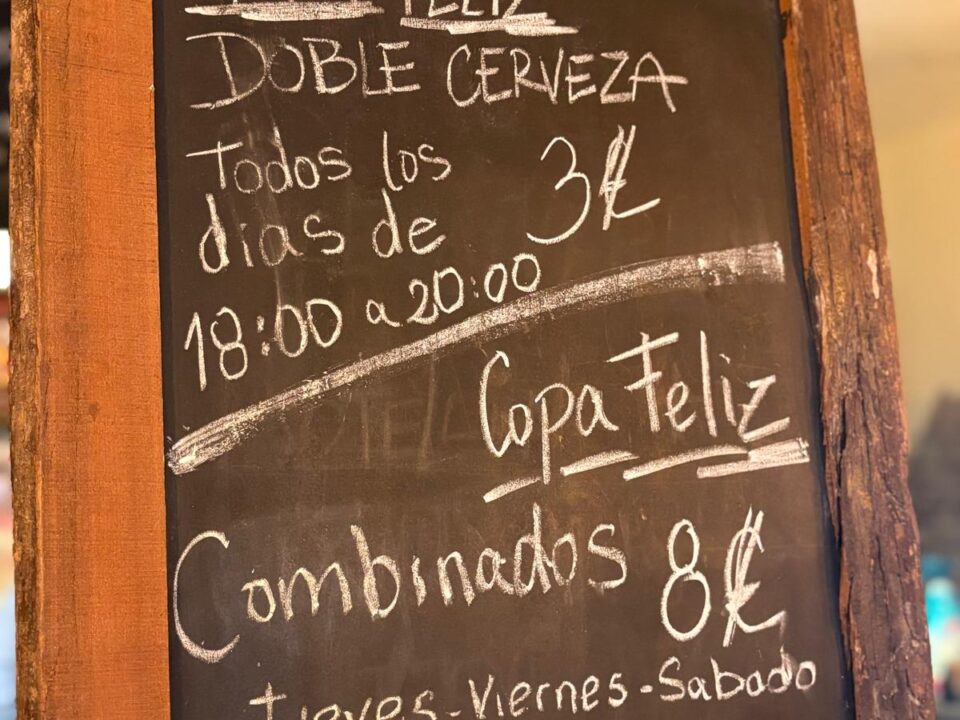 FELIZ
DOBLE CERVEZA
Todos los
días de 3€
18:00 a 20:00
Copa Feliz
Combinados 8€
Jueves-Viernes-Sabado